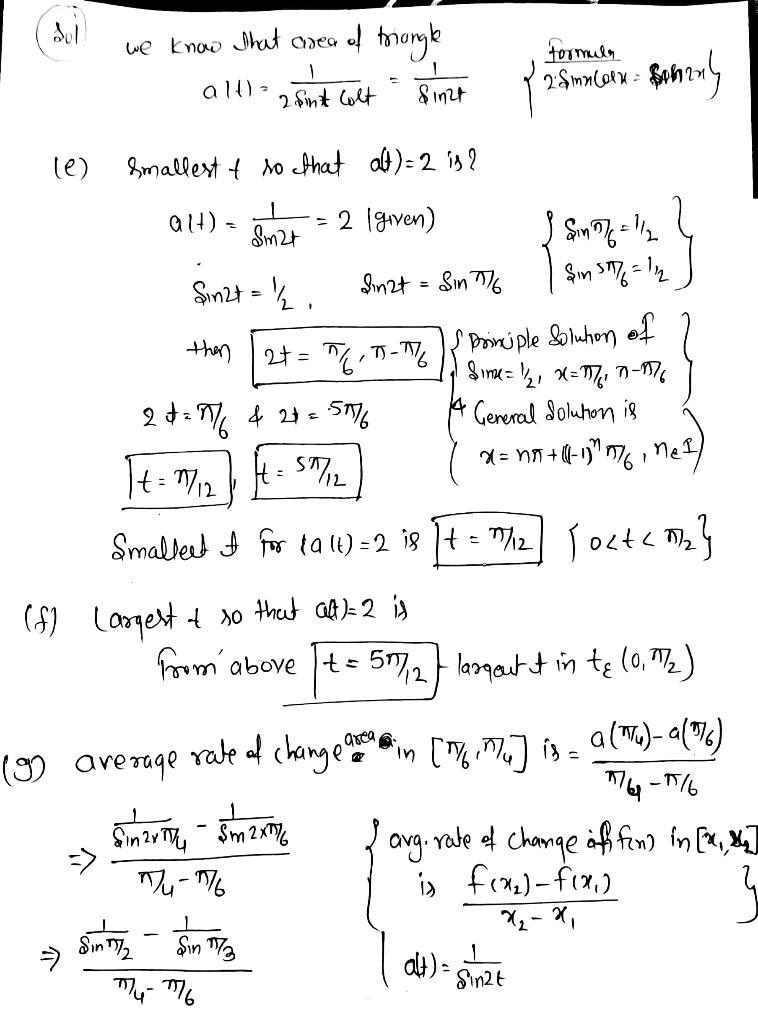 Sol
we know that area of triangle
a(t) = 1/(2 Sint Cost) = 1/Sin2t
{ formula 2 Sinx Cosx = Sin2x }
(e) Smallest t so that a(t)=2 is?
a(t) = 1/Sin2t = 2 (given)
{ Sin π/6 = 1/2
Sin 5π/6 = 1/2 }
Sin2t = 1/2 , Sin2t = Sin π/6
then 2t = π/6, π-π/6
{ principle Solution of
Sinx = 1/2, x = π/6, π-π/6 }
2t = π/6 & 2t = 5π/6
& General Solution is
t = π/12, t = 5π/12
x = nπ + (-1)ⁿ π/6, n∈I
Smallest t for (a(t)=2 is t = π/12 {0<t<π/2}
(f) Largest t so that a(t)=2 is
from above t = 5π/12 largest t in t∈(0, π/2)
(g) average rate of change area in [π/6, π/4] is = (a(π/4) - a(π/6))/(π/4 - π/6)
⇒ (1/Sin2×π/4 - 1/Sin2×π/6)/(π/4 - π/6)
{ avg. rate of change of f(x) in [x₁, x₂]
is (f(x₂) - f(x₁))/(x₂ - x₁) }
⇒ (1/Sin π/2 - 1/Sin π/3)/(π/4 - π/6)
a(t) = 1/Sin2t